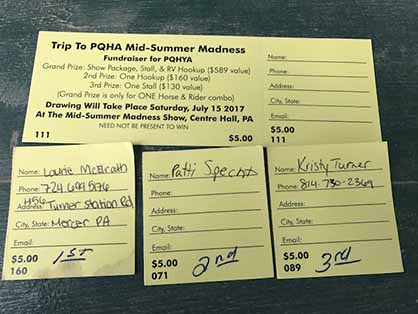 Trip To PQHA Mid-Summer Madness
Fundraiser for PQHYA
Grand Prize: Show Package, Stall, & RV Hookup ($589 value)
2nd Prize: One Hookup ($160 value)
3rd Prize: One Stall ($130 value)
(Grand Prize is only for ONE Horse & Rider combo)
Drawing Will Take Place Saturday, July 15 2017
At The Mid-Summer Madness Show, Centre Hall, PA
NEED NOT BE PRESENT TO WIN
111 $5.00
Name:
Phone:
Address:
City, State:
Email:
$5.00
111
Name: Laurie McElrath
Phone: 724
Address: 456 Turner Station Rd
City, State: Mercer PA
Email:
$5.00
160 1ST
Name: Patti Specht
Phone:
Address:
City, State:
Email:
$5.00
071 2nd
Name: Kristy Turner
Phone: 814-730-2369
Address:
City, State:
Email:
$5.00
089 3rd